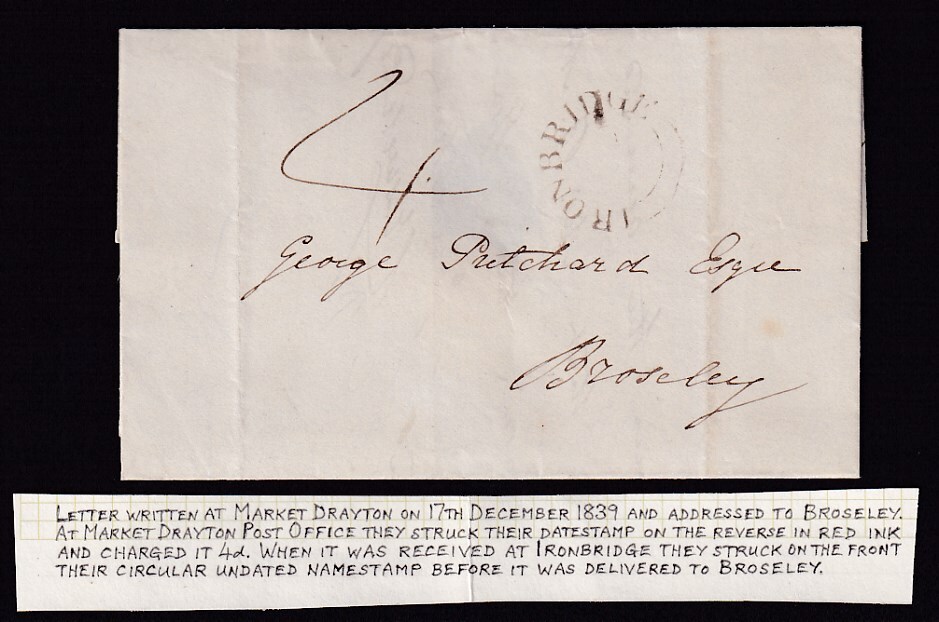 4
IRONBRIDGE
George Pritchard Esqre
Broseley
LETTER WRITTEN AT MARKET DRAYTON ON 17TH DECEMBER 1839 AND ADDRESSED TO BROSELEY.
AT MARKET DRAYTON POST OFFICE THEY STRUCK THEIR DATESTAMP ON THE REVERSE IN RED INK
AND CHARGED IT 4d. WHEN IT WAS RECEIVED AT IRONBRIDGE THEY STRUCK ON THE FRONT
THEIR CIRCULAR UNDATED NAMESTAMP BEFORE IT WAS DELIVERED TO BROSELEY.